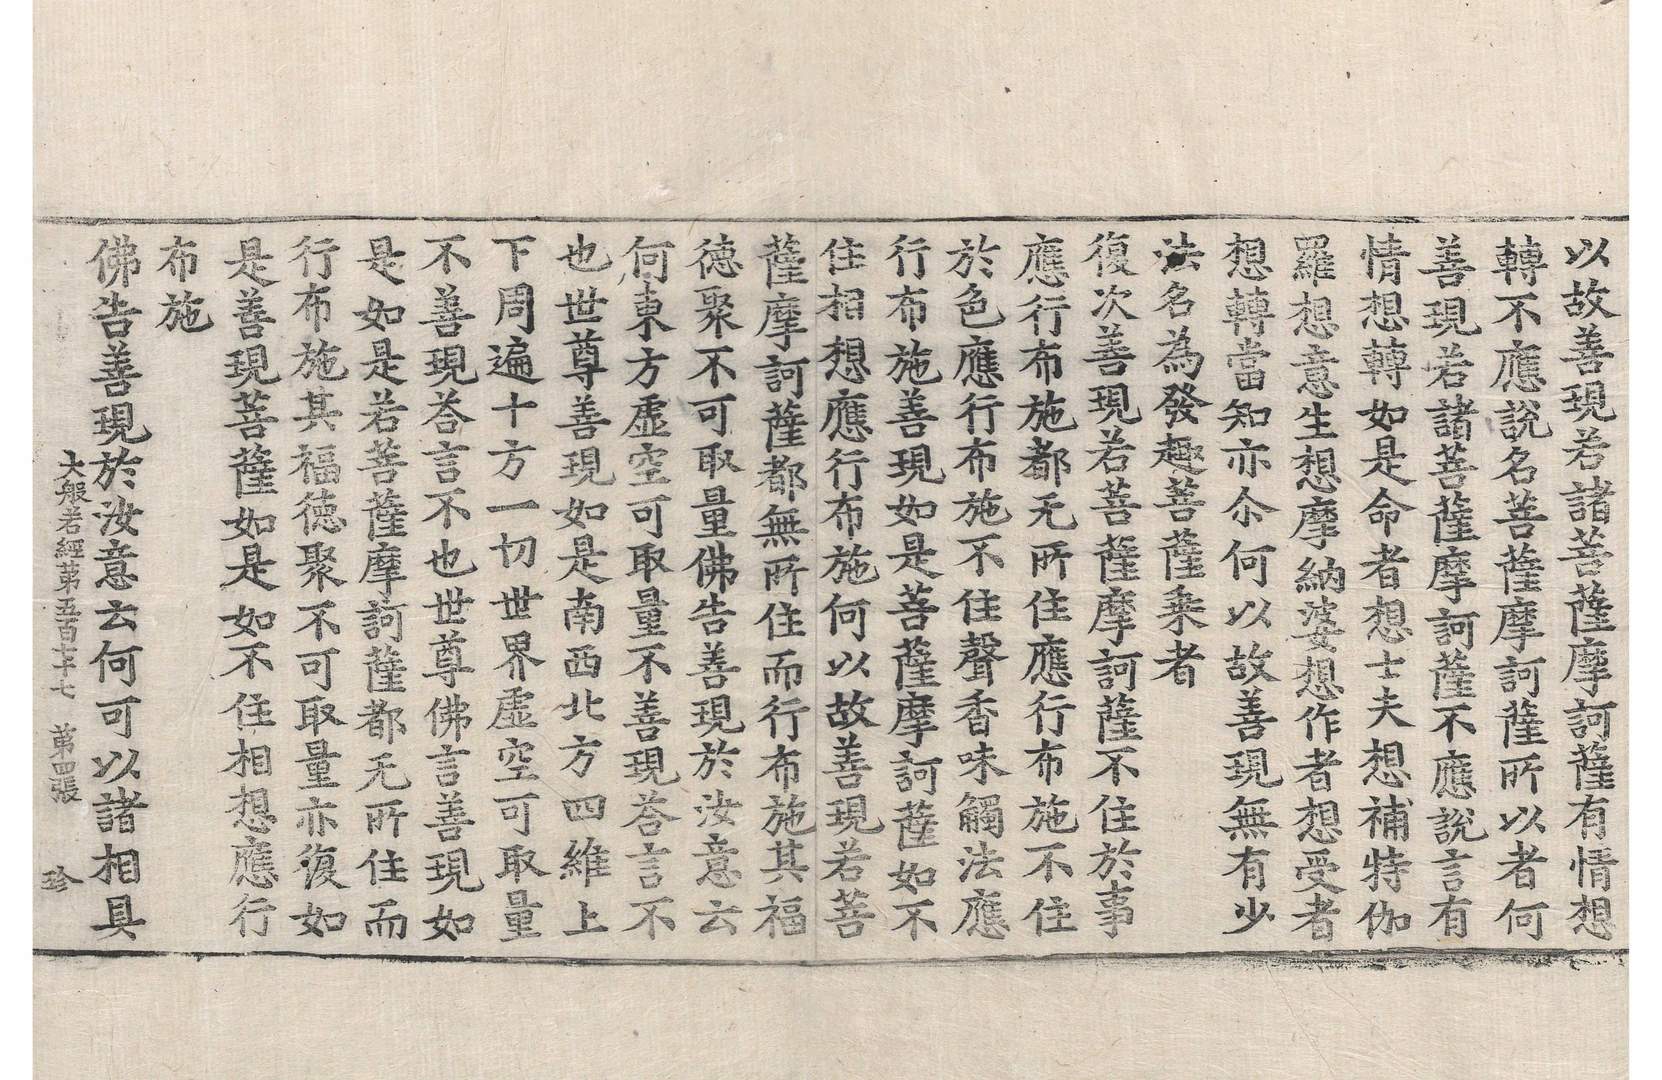 以故善現若諸菩薩摩訶薩有情想
轉不應說名菩薩摩訶薩所以者何
善現若諸菩薩摩訶薩不應說言有
情想轉如是命者想士夫想補特伽
羅想意生想摩納婆想作者想受者
想轉當知亦尒何以故善現無有少
法名為發趣菩薩乘者
復次善現若菩薩摩訶薩不住於事
應行布施都无所住應行布施不住
於色應行布施不住聲香味觸法應
行布施善現如是菩薩摩訶薩如不
住相想應行布施何以故善現若菩
薩摩訶薩都無所住而行布施其福
德聚不可取量佛告善現於汝意云
何東方虛空可取量不善現荅言不
也世尊善現如是南西北方四維上
下周遍十方一切世界虛空可取量
不善現荅言不也世尊佛言善現如
是如是若菩薩摩訶薩都无所住而
行布施其福德聚不可取量亦復如
是善現菩薩如是如不住相想應行
布施
佛告善現於汝意云何可以諸相具
大般若經第五百七十七 第四張 珍